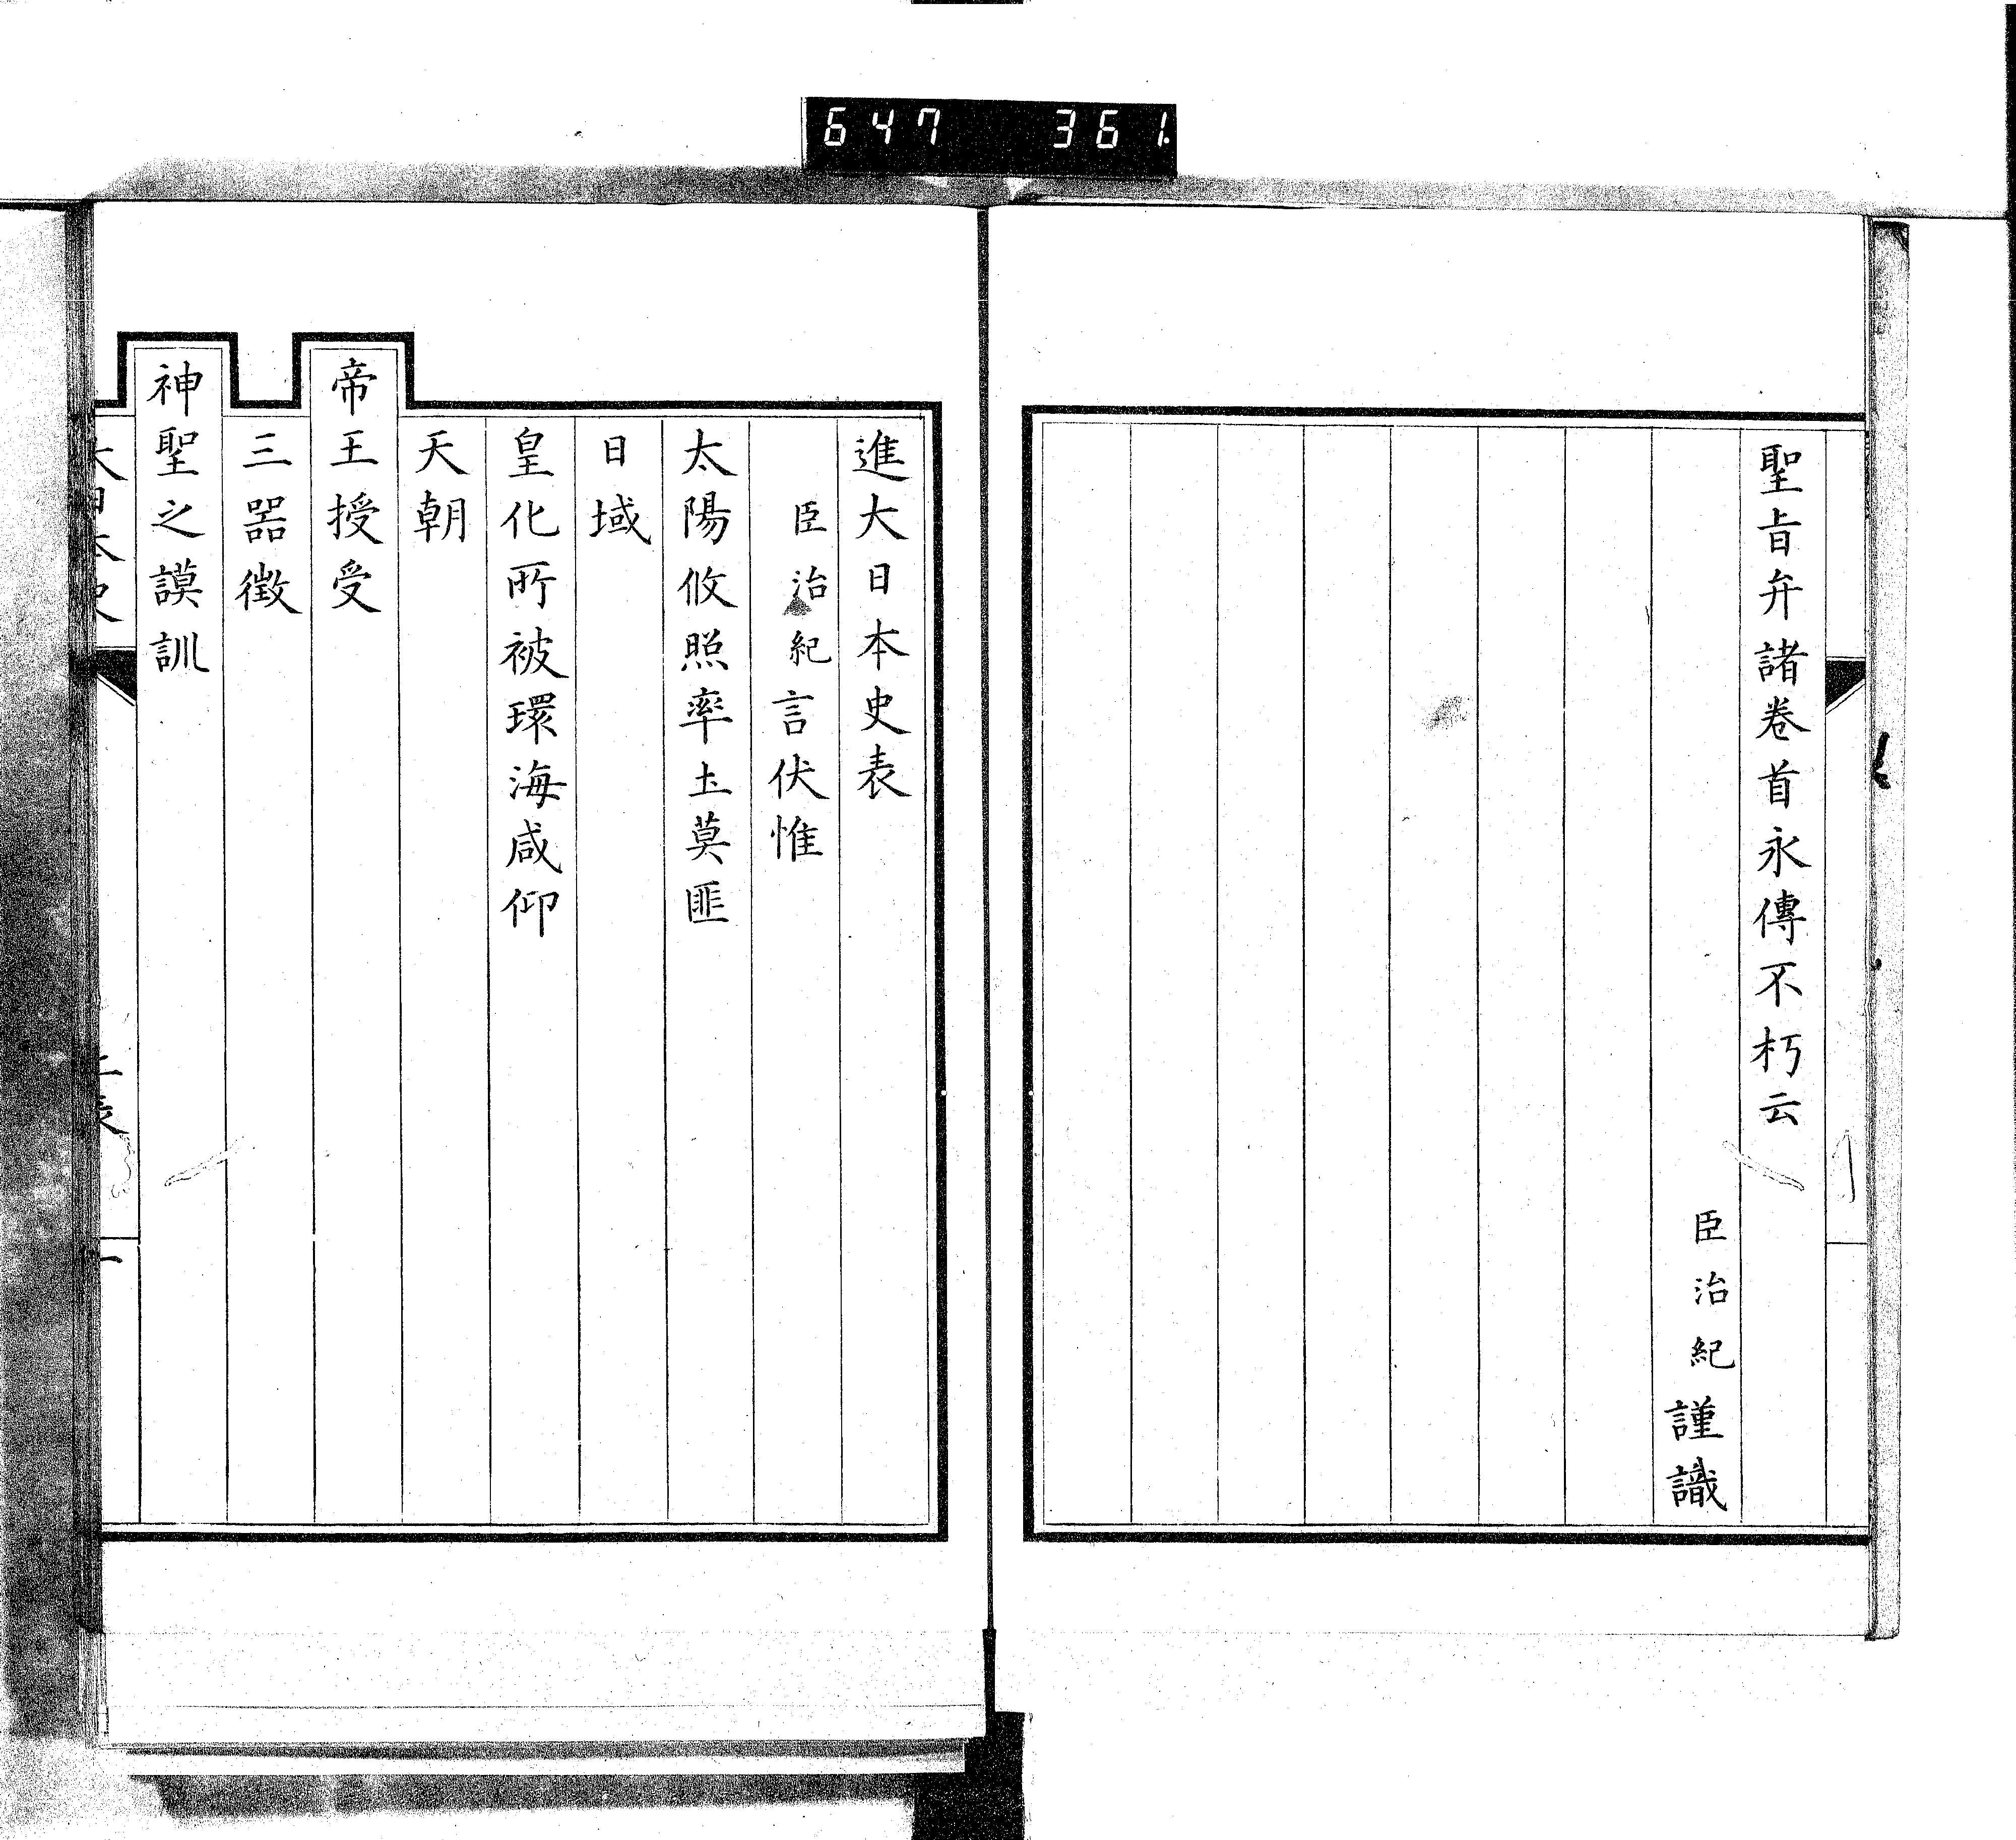 647 361
聖旨弁諸卷首永傳不朽云
臣治紀謹識
進大日本史表
臣治紀言伏惟
太陽攸照率土莫匪
日域
皇化所被環海咸仰
天朝
帝王授受
三器徵
神聖之謨訓
大日本史
上表
一